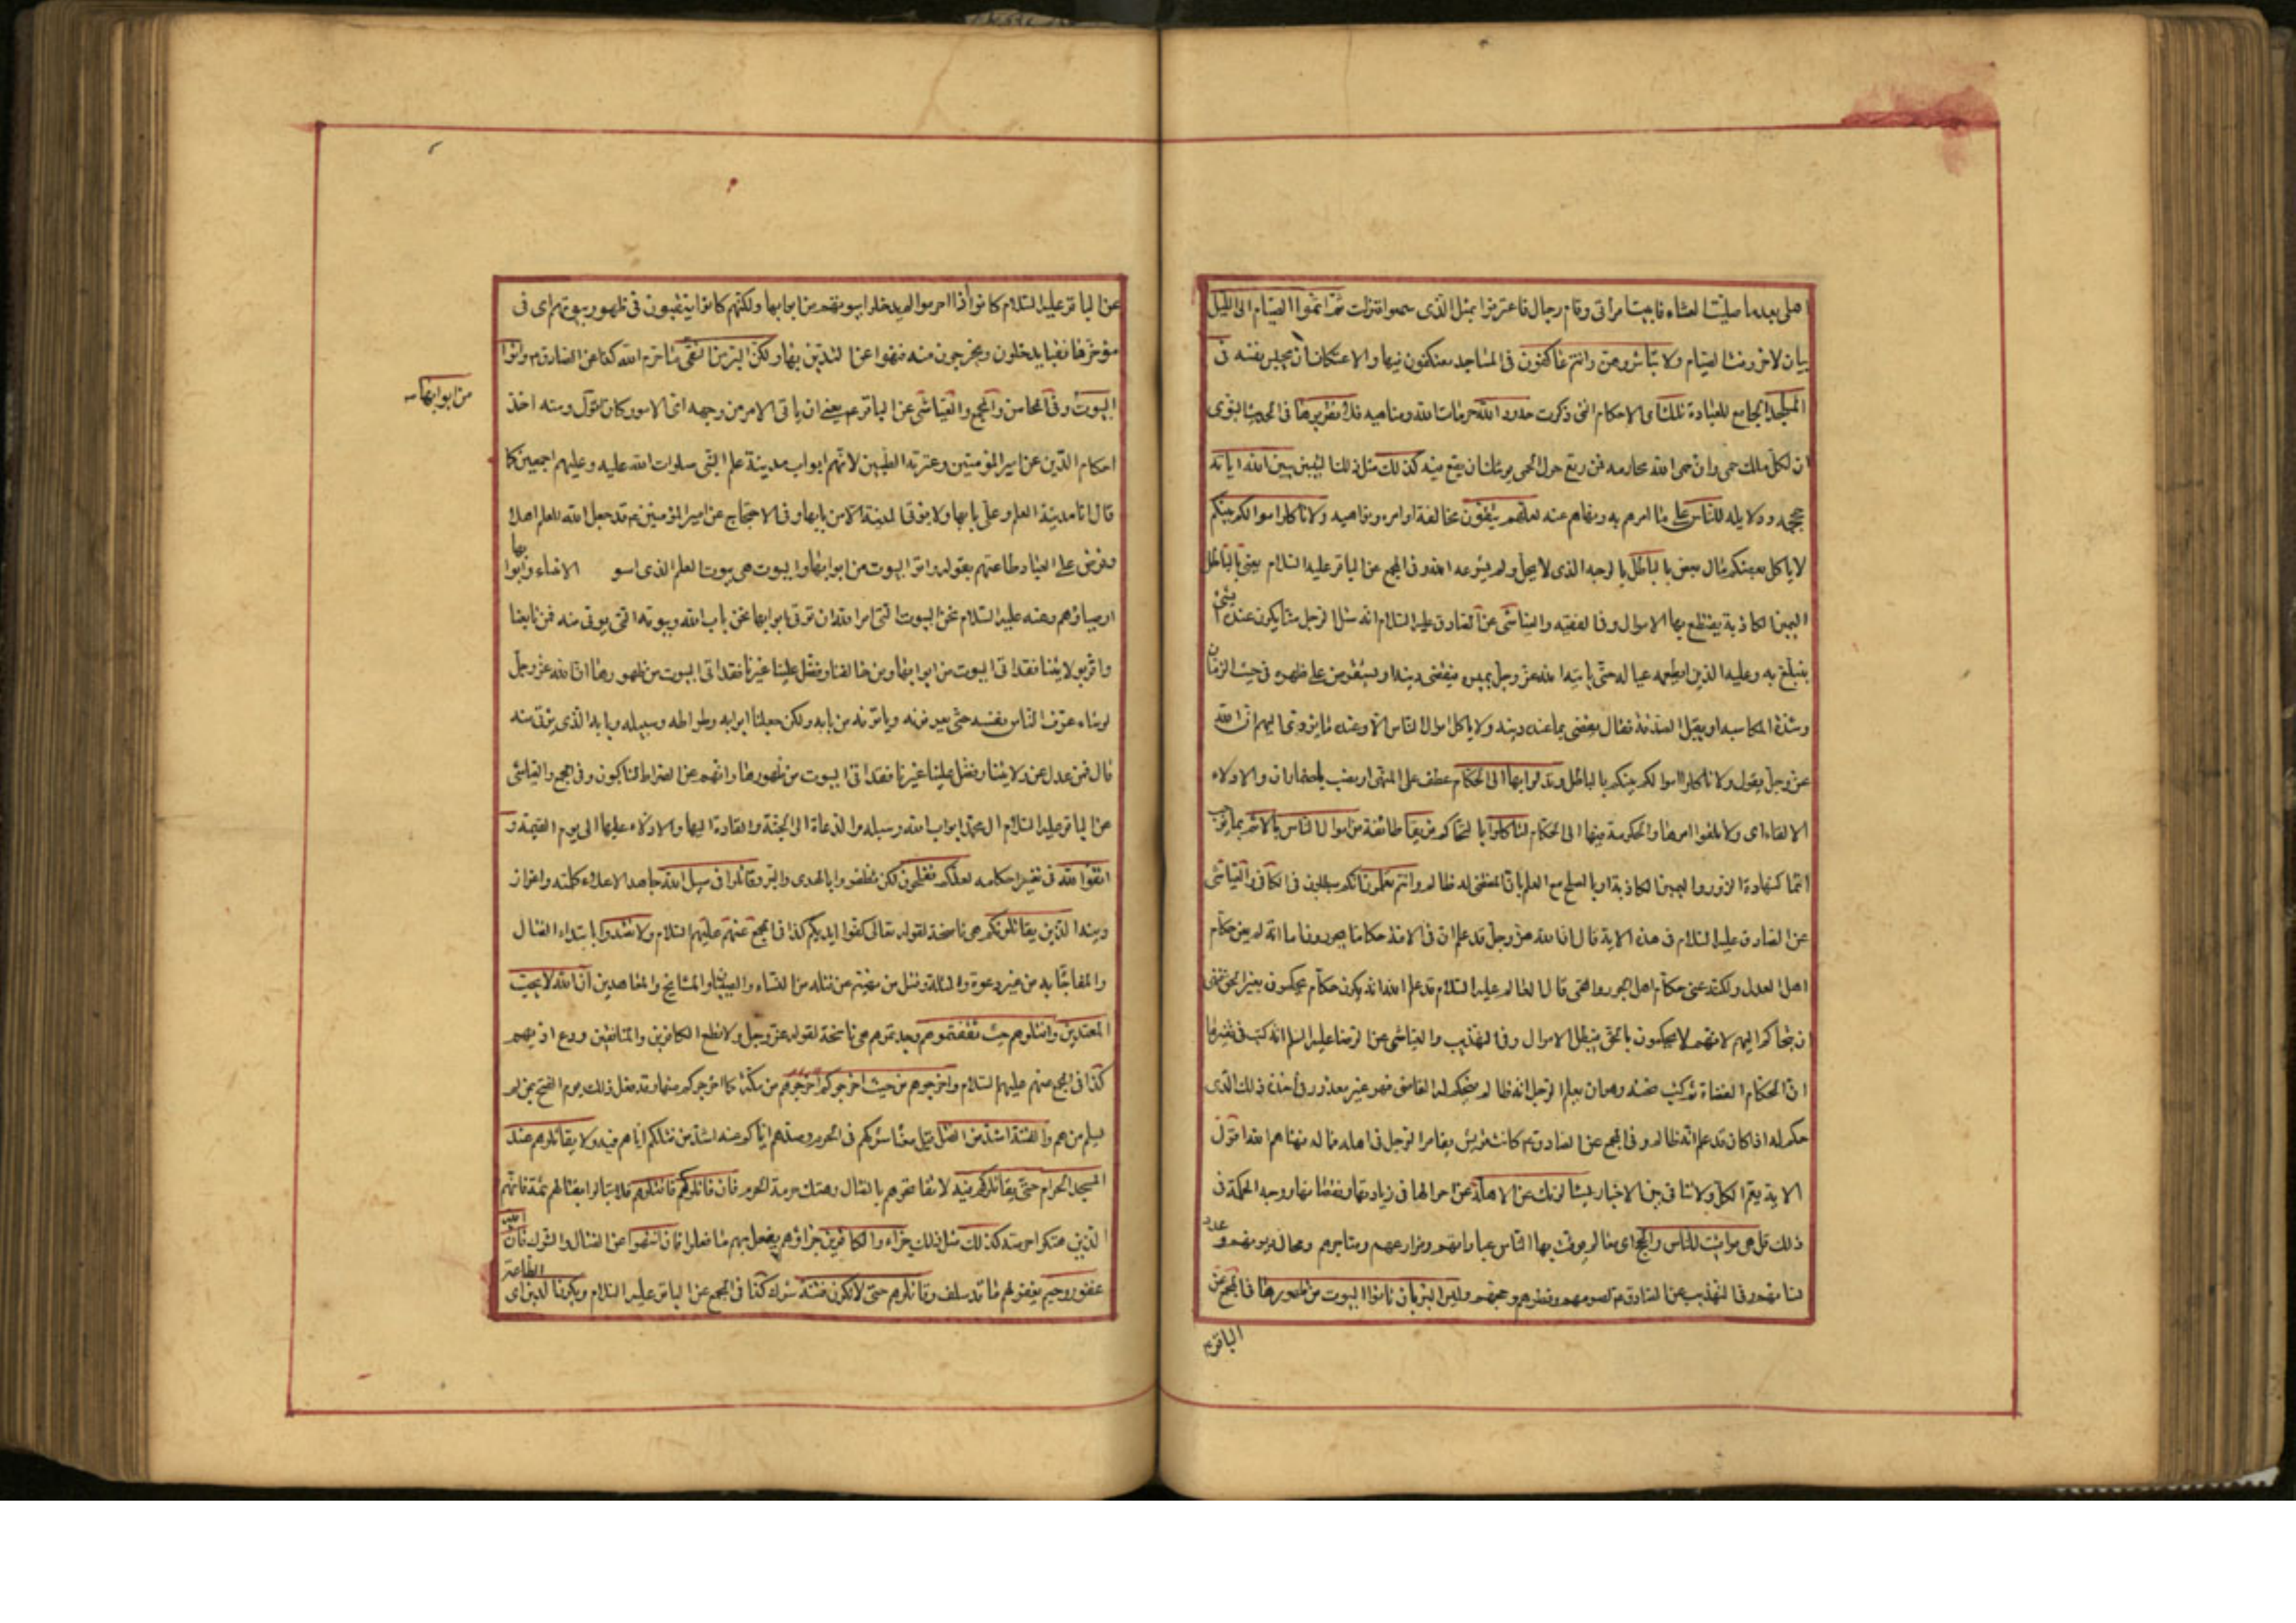 اهلى بعد ما صليت العشاء فاتيت امرأتى وقام رجال فاعترفوا بمثل الذى سمعوا فنزلت ثم اتموا الصيام الى الليل
بيان لاخر وقت الصيام ولا تباشروهن وانتم عاكفون فى المساجد معتكفون فيها والاعتكاف ان يحبس نفسه فى
المسجد الجامع للعبادة تلك اى الاحكام التى ذكرت حدود الله حرمات الله ومناهيه فلا تقربوها فى الحديث النبوى
ان لكل ملك حمى وان حمى الله محارمه فمن رتع حول الحمى يوشك ان يقع فيه كذلك مثل ذلك التبيين يبين الله اياته
حججه ودلايله للناس على ما امرهم به ونهاهم عنه لعلهم يتقون مخالفة اوامره ونواهيه ولا تاكلوا اموالكم بينكم
لا ياكل بعضكم مال بعض بالباطل بالوجه الذى لا يحل ولم يشرعه الله وفى المجمع عن الباقر عليه السلام يعنى بالباطل
اليمين الكاذبة يقتطع بها الاموال وفى الفقيه والعياشى عن الصادق عليه السلام انه سئل الرجل منا يكون عنده الشئ
يتبلغ به وعليه الدين ايطعمه عياله حتى ياتيه الله عز وجل بميسرة فيقضى دينه او يستقرض على ظهره فى خبث الزمان
وشدة المكاسب او يقبل الصدقة فقال يقضى بما عنده دينه ولا ياكل اموال الناس الا وعنده ما يؤدى اليهم ان الله
عز وجل يقول ولا تاكلوا اموالكم بينكم بالباطل وتدلوا بها الى الحكام عطف على المنهى او نصب باضمار ان والادلاء
الالقاء اى ولا تلقوا امرها والحكومة فيها الى الحكام لتاكلوا بالتحاكم فريقا طائفة من اموال الناس بالاثم بما يوجب
اثما كشهادة الزور واليمين الكاذبة او بالصلح مع العلم بان المقضى له ظالم وانتم تعلمون انكم مبطلون فى الكافى والعياشى
عن الصادق عليه السلام فى هذه الاية قال ان الله عز وجل قد علم ان فى الامة حكاما يجورون اما انه لم يعن حكام
اهل العدل ولكنه عنى حكام اهل الجور والقمى قال العالم عليه السلام قد علم الله انه يكون حكام يحكمون بغير الحق فنهى
ان يتحاكم اليهم لانهم لا يحكمون بالحق فيبطل الاموال وفى التهذيب والعياشى عن الرضا عليه السلم انه كتب فى تفسيرها
ان الحكام القضاة ثم كتب تحته وهو ان يعلم الرجل انه ظالم فيحكم له القاضى فهو غير معذور فى اخذه ذلك الذى
حكم له اذا كان قد علم انه ظالم وفى المجمع عن الصادق ع كانت قريش يقامر الرجل فى اهله وماله فنهاهم الله اقول
الاية يعم الكل ولا تنافى بين الاخبار يسئلونك عن الاهلة عن احوالها فى زيادتها ونقصانها ووجه الحكمة فى
ذلك قل هى مواقيت للناس والحج اى معالم يوقت بها الناس عباداتهم ومزارعهم ومتاجرهم ومحال ديونهم وعدد
نسائهم وفى التهذيب عن الصادق ع لصومهم وفطرهم وحجهم وليس البر بان تاتوا البيوت من ظهورها فى المجمع عن
الباقر ع
عن الباقر عليه السلام كانوا اذا احرموا لم يدخلوا بيوتهم من ابوابها ولكنهم كانوا ينقبون فى ظهور بيوتهم اى فى
مؤخرها نقبا يدخلون ويخرجون منه فنهوا عن التدين بها ولكن البر من اتقى ما حرم الله كذا عن الصادق ع واتوا
البيوت وفى المحاسن والمجمع والعياشى عن الباقر ع يعنى ان ياتى الامر من وجهه اى الامور كان اقول ومنه اخذ
من ابوابها
احكام الدين عن امير المؤمنين وعترته الطيبين لانهم ابواب مدينة علم النبى صلوات الله عليه وعليهم اجمعين كما
قال انا مدينة العلم وعلى بابها ولا يؤتى المدينة الا من بابها وفى الاحتجاج عن امير المؤمنين ع قد جعل الله للعلم اهلا
وفرض على العباد طاعتهم بقوله واتوا البيوت من ابوابها والبيوت هى بيوت العلم الذى استو الانبياء وابوابها
اوصياؤهم وعنه عليه السلام نحن البيوت التى امر الله ان تؤتى ابوابها نحن باب الله وبيوته التى يؤتى منه فمن تابعنا
واقر بولايتنا فقد اتى البيوت من ابوابها ومن خالفنا وفضل علينا غيرنا فقد اتى البيوت من ظهورها ان الله عز وجل
لو شاء عرف الناس نفسه حتى يعرفونه وياتونه من بابه ولكن جعلنا ابوابه وصراطه وسبيله وبابه الذى يؤتى منه
قال فمن عدل عن ولايتنا وفضل علينا غيرنا فقد اتى البيوت من ظهورها وانهم عن الصراط لناكبون وفى المجمع والعياشى
عن الباقر عليه السلام ال محمد ابواب الله وسبله والدعاة الى الجنة والقادة اليها والادلاء عليها الى يوم القيمة و
اتقوا الله فى تغيير احكامه لعلكم تفلحون لكى تظفروا بالهدى والبر وقاتلوا فى سبيل الله جاهدوا لاعلاء كلمته واعزاز
دينه الذين يقاتلونكم هى ناسخة لقوله تعالى كفوا ايديكم كذا فى المجمع عنهم عليهم السلام ولا تعتدوا بابتداء القتال
والمفاجاة به من غير دعوة والمثلة وقتل من نهيتم عن قتله من النساء والصبيان والمشايخ والمعاهدين ان الله لا يحب
المعتدين واقتلوهم حيث ثقفتموهم وجدتموهم هى ناسخة لقوله عز وجل ولا تطع الكافرين والمنافقين ودع اذيهم
كذا فى المجمع عنهم عليهم السلام واخرجوهم من حيث اخرجوكم اخرجوهم من مكة كما اخرجوكم منها وقد فعل ذلك يوم الفتح بمن لم
يسلم منهم والفتنة اشد من القتل قيل معناه شركهم فى الحرم وصدهم اياكم عنه اشد من قتلكم اياهم فيه ولا يقاتلوهم عند
المسجد الحرام حتى يقاتلوكم فيه لا تفاتحوهم بالقتال وهتك حرمة الحرم فان قاتلوكم فاقتلوهم فلا تبالوا بقتالهم ثمة فانهم
الذين هتكوا حرمته كذلك مثل ذلك جزاء والكافرين جزاؤهم يفعل بهم ما فعلوا فان انتهوا عن القتال والشرك فان الله
غفور رحيم يغفر لهم ما قد سلف وقاتلوهم حتى لا تكون فتنة شرك كذا فى المجمع عن الباقر عليه السلام ويكون الدين اى الطاعة